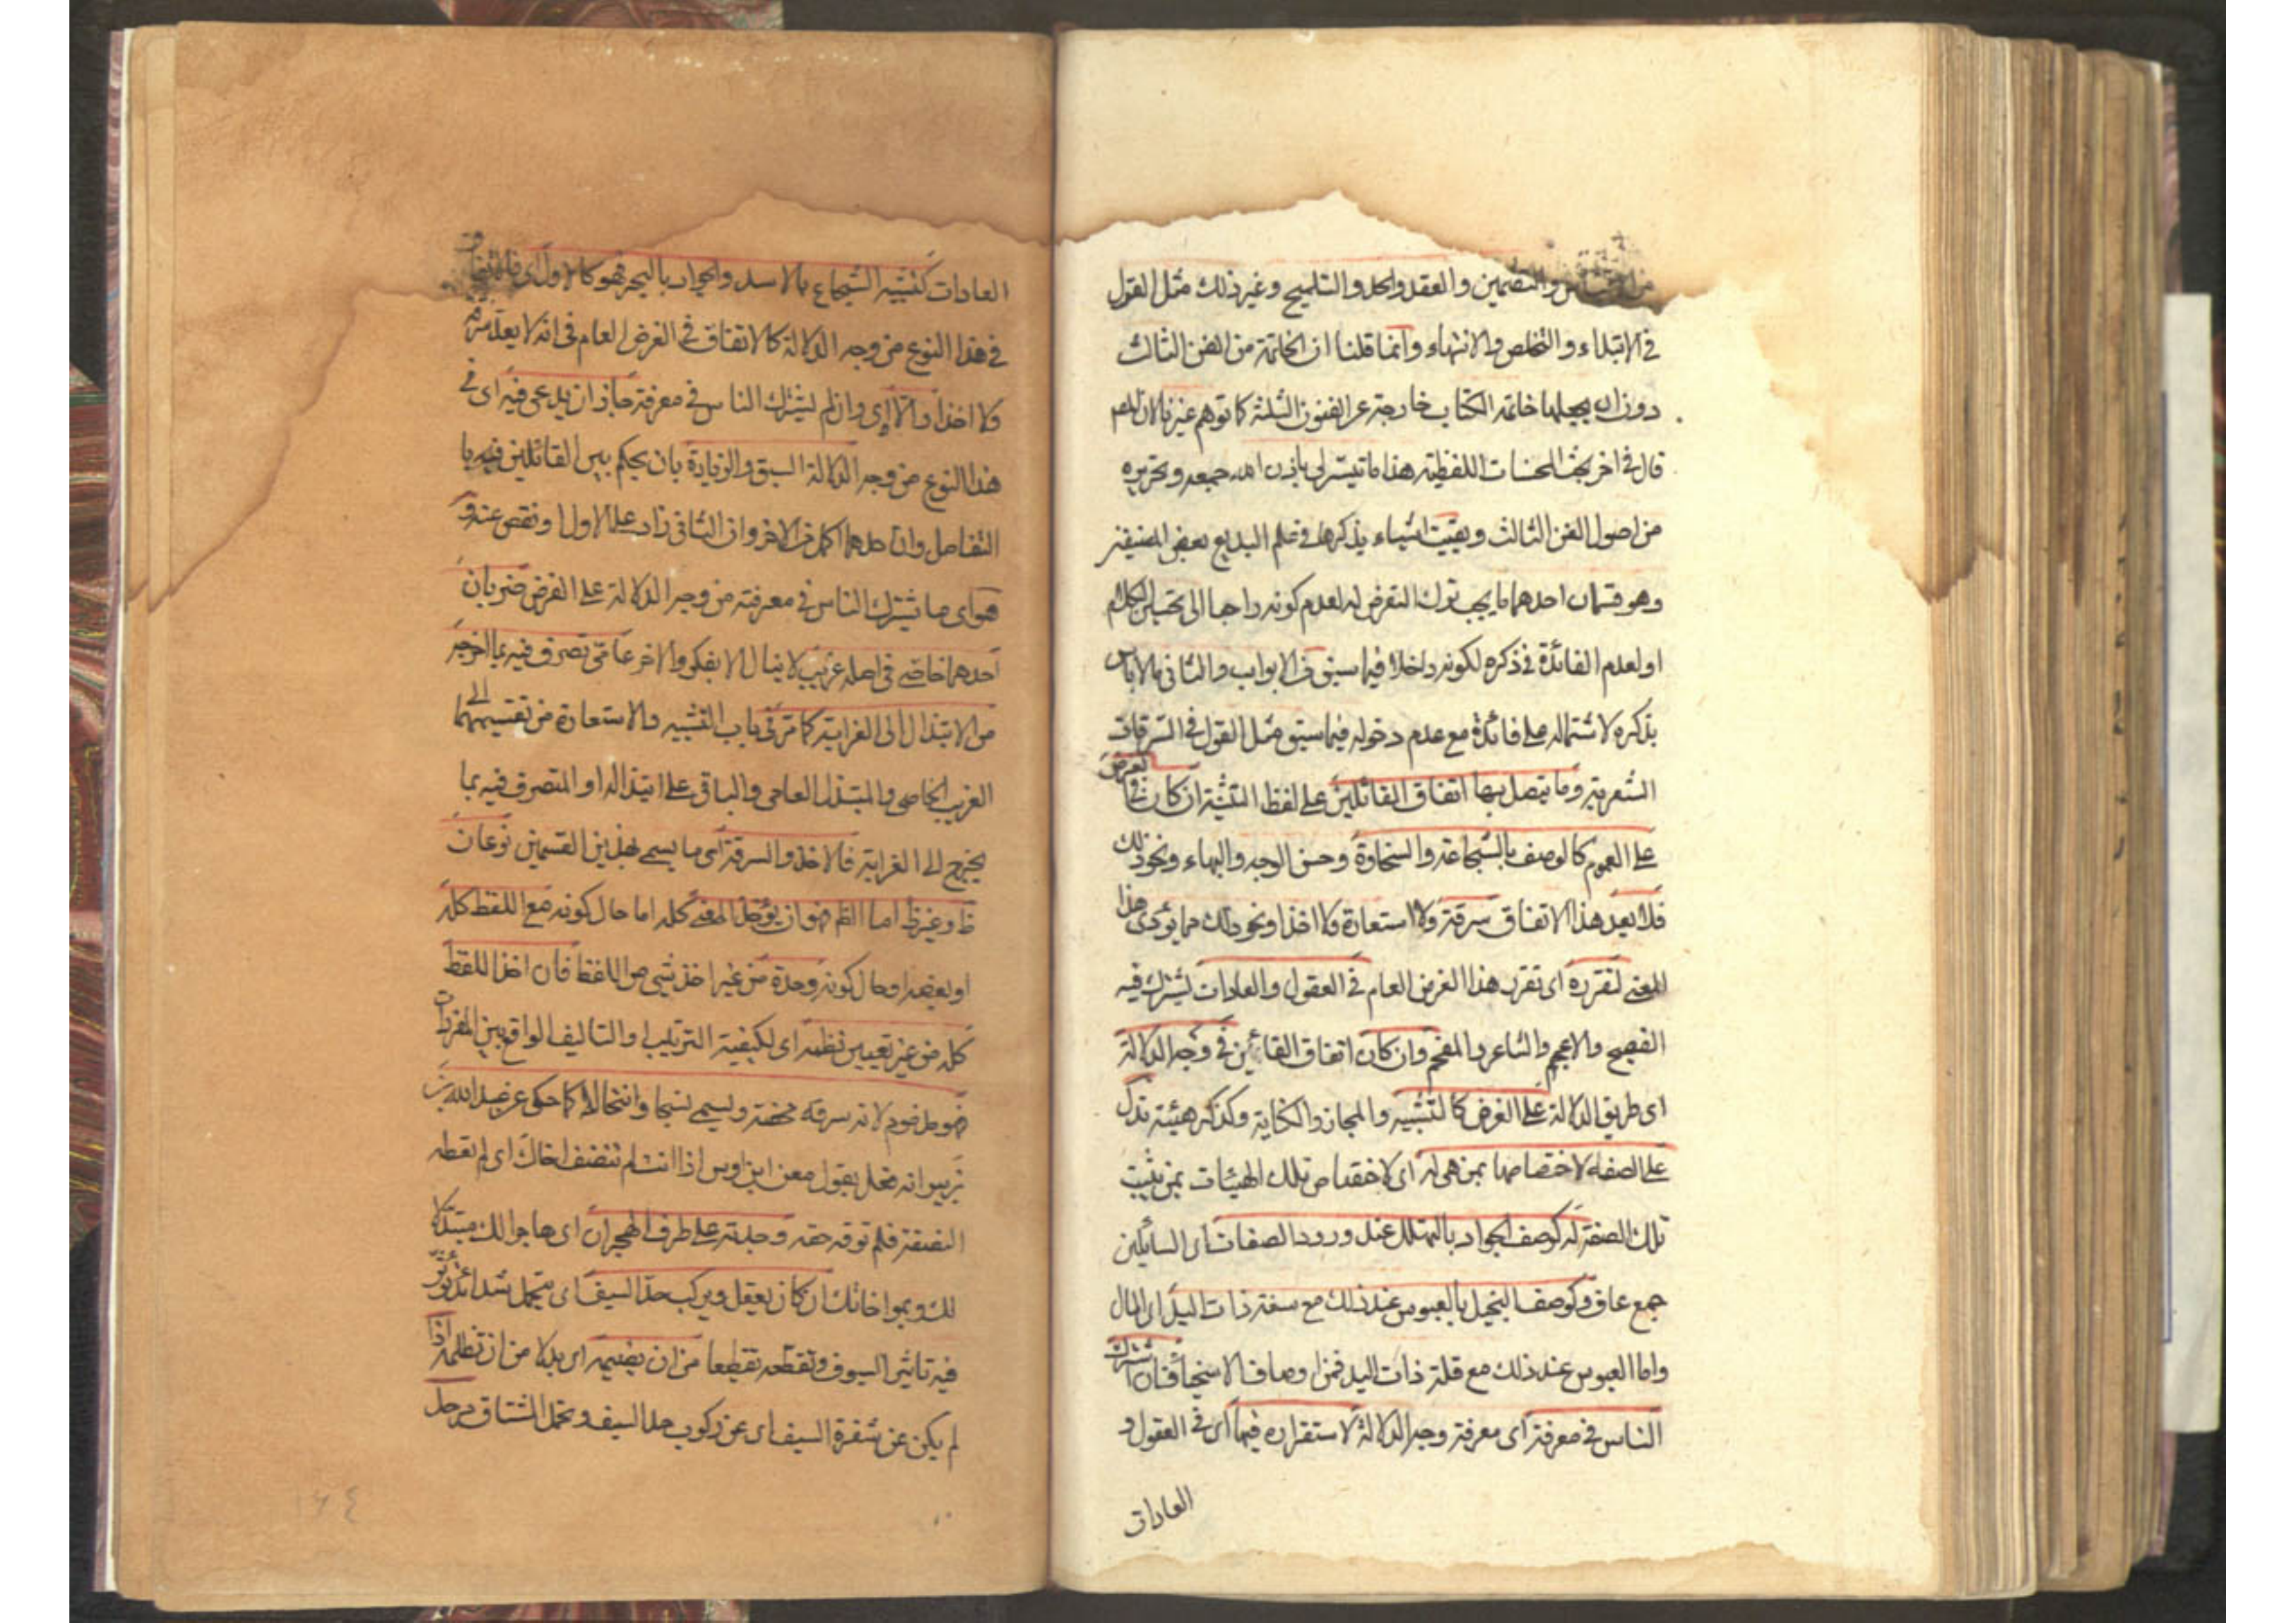 من الاقتباس والتضمين والعقد والحل والتلميح وغير ذلك مثل القول
في الابتداء والتخلص والانتهاء وانما قلنا ان الخاتمة من الفن الثالث
دون ان يجعلها خاتمة الكتاب خارجة عن الفنون الثلثة كما توهم غيرنا لان المص
قال في اخر بحث المحسنات اللفظية هذا ما تيسر لي باذن الله جمعه وتحريره
من اصول الفن الثالث وبقيت اشياء يذكرها في علم البديع بعض المصنفين
وهو قسمان احدهما ما يجب ترك التعرض له لعدم كونه راجعا الى تحسين الكلام
او لعدم الفائدة في ذكره لكونه داخلا فيما سبق من الابواب والثاني ما لا باس
بذكره لاشتماله على فائدة مع عدم دخوله فيما سبق مثل القول في السرقات
الشعرية وما يتصل بها اتفاق القائلين على لفظ التثنية ان كان في الغرض
على العموم كالوصف بالشجاعة والسخاوة وحسن الوجه والبهاء ونحو ذلك
فلا يعد هذا الاتفاق سرقة ولا استعارة ولا اخذا ونحو ذلك مما يؤدى هذا
المعنى لتقرره اى تقرر هذا الغرض العام في العقول والعادات يشترك فيه
الفصيح والاعجم والشاعر والمفحم وان كان اتفاق القائلين في وجه الدلالة
اى طريق الدلالة على الغرض كالتشبيه والمجاز والكناية وكذكر هيئة تدل
على الصفة لاختصاصها بمن هى له اى لاختصاص تلك الهيئات بمن يثبت
تلك الصفة له كوصف الجواد بالتهلل عند ورود الصفات اى السائلين
جمع عاف وكوصف البخيل بالعبوس عند ذلك مع سعة ذات اليد اى المال
واما العبوس عند ذلك مع قلة ذات اليد فمن اوصاف الاسخياء فان اشترك
الناس في معرفته اى معرفة وجه الدلالة لاستقراره فيها اى في العقول و
العادات
العادات كتشبيه الشجاع بالاسد والجواد بالبحر فهو كالاول اى فالاتفاق
في هذا النوع من وجه الدلالة كالاتفاق في الغرض العام في انه لا يعد سرقة
ولا اخذا والا اى وان لم يشترك الناس في معرفته جاز ان يدعى فيه اى في
هذا النوع من وجه الدلالة السبق والزيادة بان يحكم بين القائلين فيه با
التفاضل وان احدهما اكمل من الاخر وان الثانى زاد على الاول او نقص عنه و
هو اى ما يشترك الناس في معرفته من وجه الدلالة على الغرض ضربان
احدهما خاصى في اصله غريب لا ينال الا بفكر والاخر عامى تصرف فيه بما اخرجه
من الابتذال الى الغرابة كما مر فى باب التشبيه والاستعارة من تقسيمهما الى
الغريب الخاصى والمبتذل العامى والباقى على ابتذاله او المتصرف فيه بما
يخرج الى الغرابة فالاخذ والسرقة اى ما يسمى بهذين القسمين نوعان
ظ وغير ظ اما الظ فهو ان يؤخذ المعنى كله اما حال كونه مع اللفظ كله
او بعضه او حال كونه وحده من غير اخذ شيى من اللفظ فان اخذ اللفظ
كله من غير تغيير نظمه اى لكيفية الترتيب والتاليف الواقع بين المفردات
فهو مذموم لانه سرقة محضة ويسمى نسخا وانتحالا كما حكى عن عبد الله بن
زبير انه فعل بقول معن ابن اوس اذا انت لم تنصف اخاك اى لم تعطه
النصفة فلم توقه حقه وجدته على طرف الهجران اى هاجرا لك مبتدلا
لك وبمواخاتك ان كان يعقل ويركب حد السيف اى يتحمل شدائد تؤثر
فيه تاثير السيوف وتقطعه تقطيعا من ان تضيمه اى بدلا من ان تظلمه اذا
لم يكن عن شفرة السيف اى عن ركوب حد السيف وتحمل المشاق مزحل
١٦٤